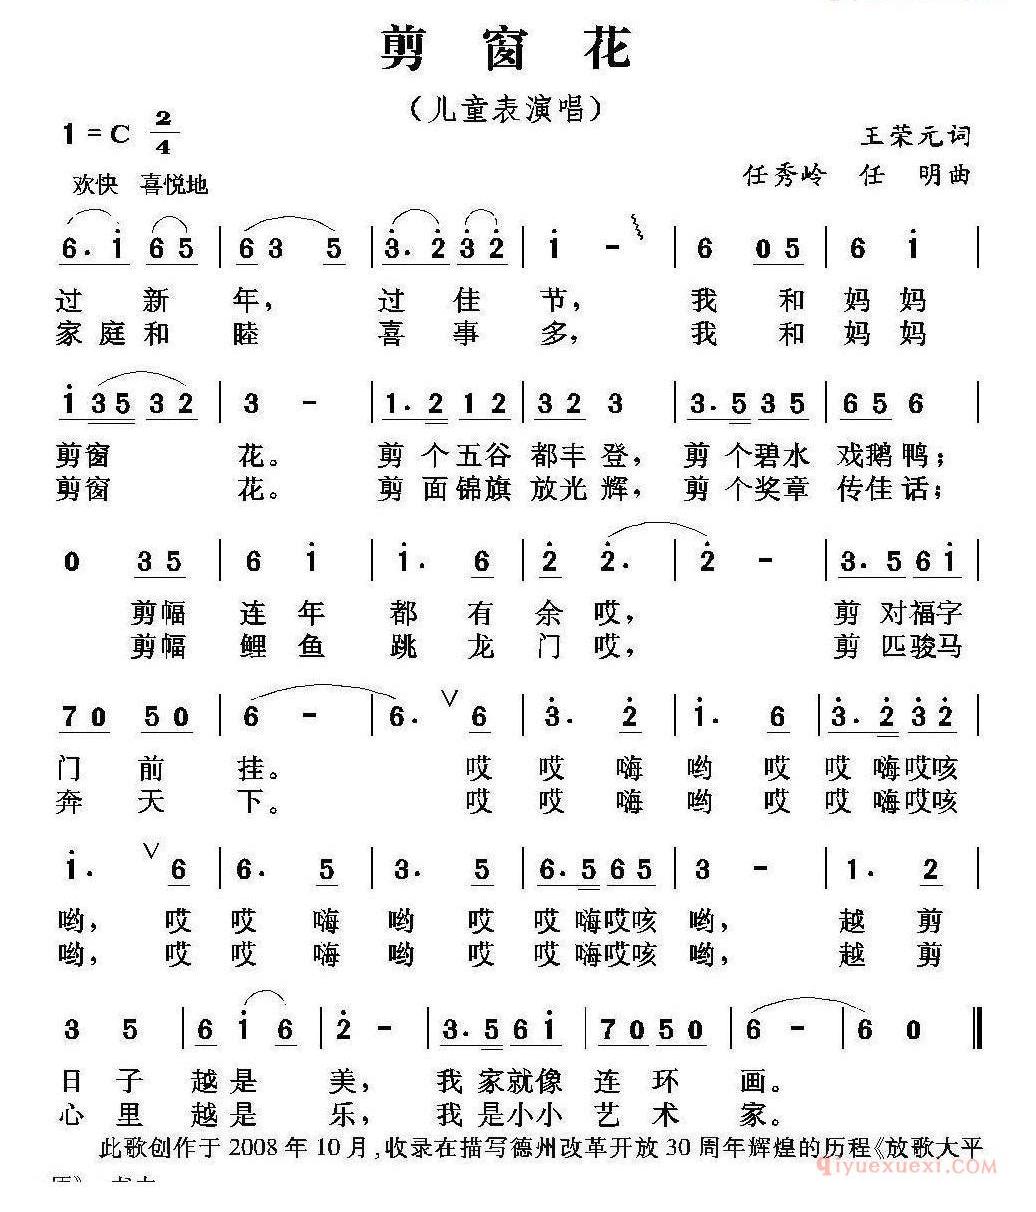 剪 窗 花
（儿童表演唱）
1 = C 2/4
王荣元词
欢快 喜悦地
任秀岭 任 明曲
6. i 6 5 | 6 3 5 | 3. 2 3 2 | i - | 6 0 5 | 6 i |
过 新 年， 过 佳 节， 我 和 妈 妈
家 庭 和 睦 喜 事 多， 我 和 妈 妈
i 3 5 3 2 | 3 - | 1. 2 1 2 | 3 2 3 | 3. 5 3 5 | 6 5 6 |
剪窗 花。 剪 个五谷 都丰 登， 剪 个碧水 戏鹅 鸭；
剪窗 花。 剪 面锦旗 放光 辉， 剪 个奖章 传佳 话；
0 3 5 | 6 i | i. 6 | 2 2. | 2 - | 3. 5 6 i |
剪幅 连 年 都 有 余 哎， 剪 对福字
剪幅 鲤 鱼 跳 龙 门 哎， 剪 匹骏马
7 0 5 0 | 6 - | 6. V 6 | 3. 2 | i. 6 | 3. 2 3 2 |
门 前 挂。 哎 哎 嗨 哟 哎 哎 嗨哎咳
奔 天 下。 哎 哎 嗨 哟 哎 哎 嗨哎咳
i. V 6 | 6. 5 | 3. 5 | 6. 5 6 5 | 3 - | 1. 2 |
哟， 哎 哎 嗨 哟 哎 哎 嗨哎咳 哟， 越 剪
哟， 哎 哎 嗨 哟 哎 哎 嗨哎咳 哟， 越 剪
3 5 | 6 i 6 | 2 - | 3. 5 6 i | 7 0 5 0 | 6 - | 6 0 ‖
日 子 越 是 美， 我 家就像 连 环 画。
心 里 越 是 乐， 我 是小小 艺 术 家。
此歌创作于 2008 年 10 月，收录在描写德州改革开放 30 周年辉煌的历程《放歌大平
qiyuexuexi.com